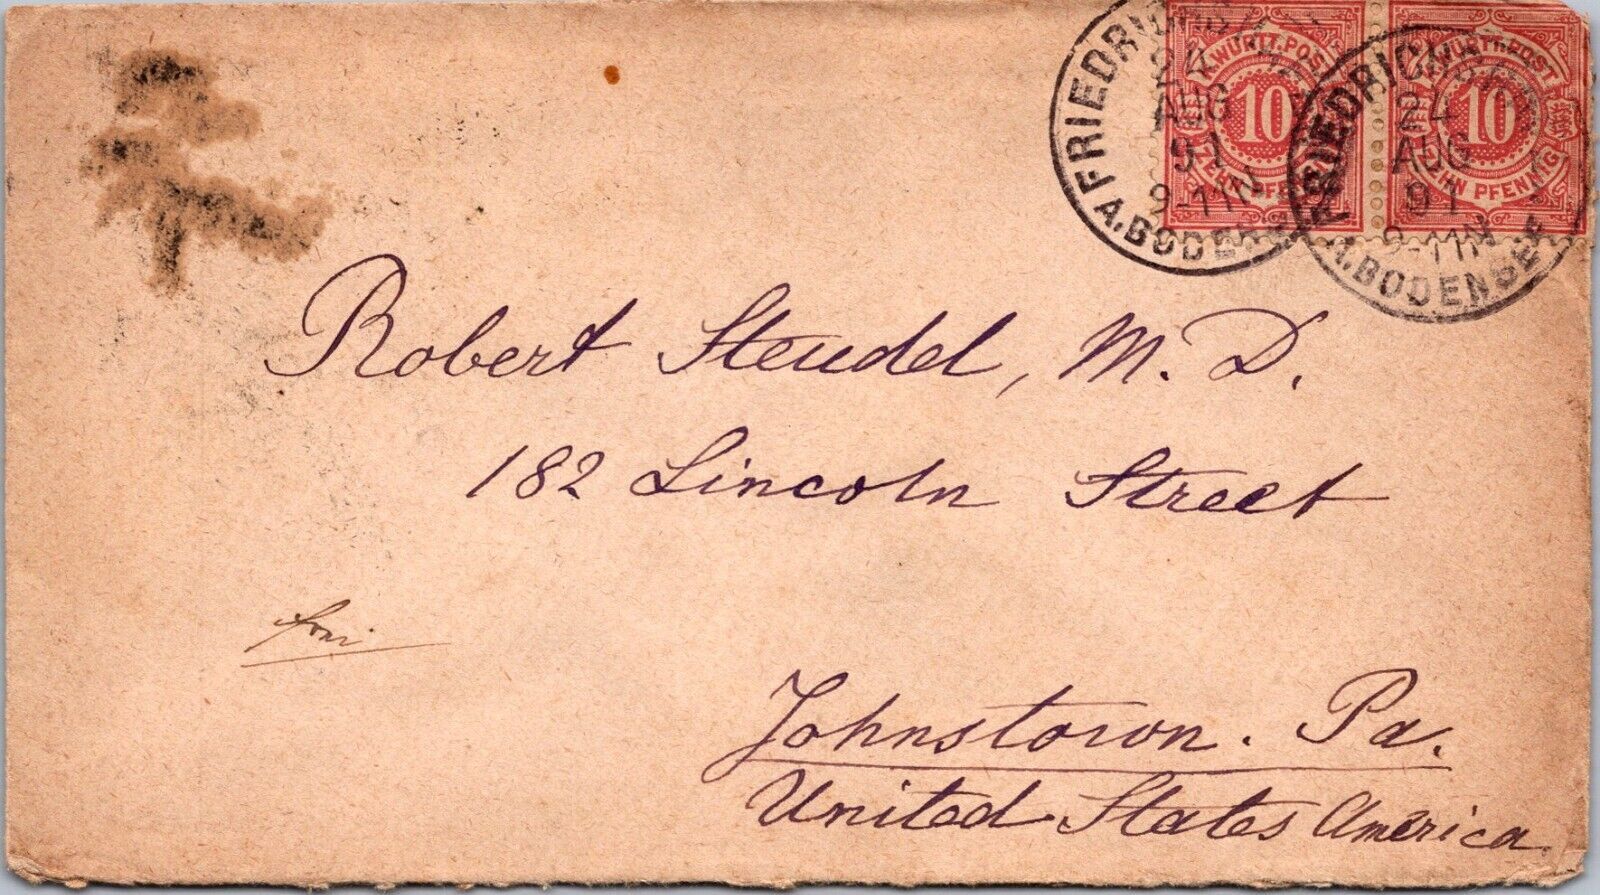 K.WÜRTT.POST
10
ZEHN PFENNIG
K.WÜRTT.POST
10
ZEHN PFENNIG
FRIEDRICHSHAFEN
24
AUG
91
9-11N
A.BODENSEE
FRIEDRICHSHAFEN
24
AUG
91
9-11N
A.BODENSEE
Robert Steudel, M. D.
182 Lincoln Street
Johnstown. Pa.
United States America